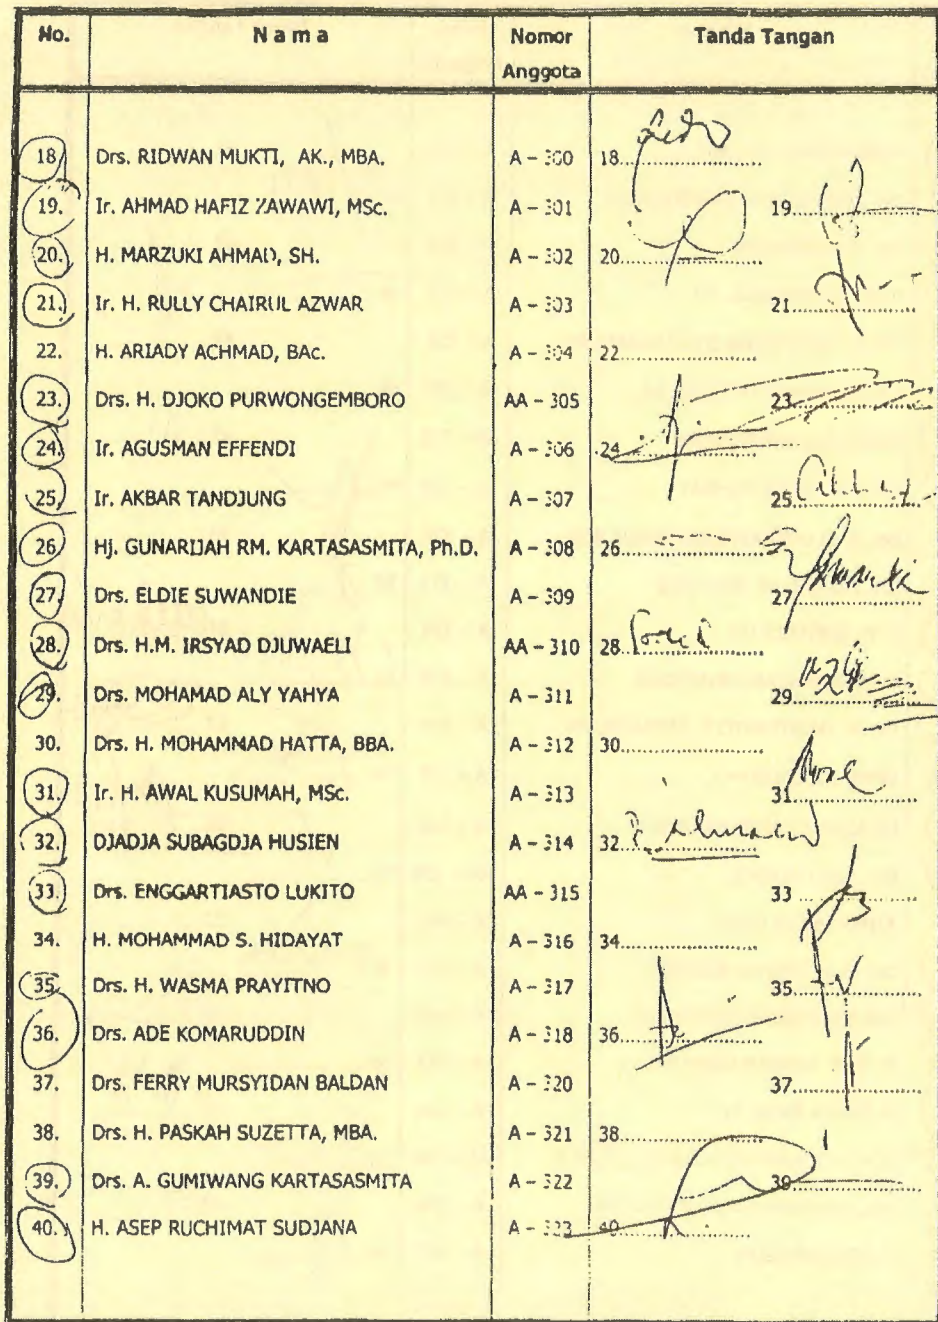 No. Nama Nomor Anggota Tanda Tangan
18. Drs. RIDWAN MUKTI, AK., MBA. A - 300 18....................
19. Ir. AHMAD HAFIZ ZAWAWI, MSc. A - 301 19....................
20. H. MARZUKI AHMAD, SH. A - 302 20....................
21. Ir. H. RULLY CHAIRUL AZWAR A - 303 21....................
22. H. ARIADY ACHMAD, BAc. A - 304 22....................
23. Drs. H. DJOKO PURWONGEMBORO AA - 305 23....................
24. Ir. AGUSMAN EFFENDI A - 306 24....................
25. Ir. AKBAR TANDJUNG A - 307 25....................
26. Hj. GUNARIJAH RM. KARTASASMITA, Ph.D. A - 308 26....................
27. Drs. ELDIE SUWANDIE A - 309 27....................
28. Drs. H.M. IRSYAD DJUWAELI AA - 310 28....................
29. Drs. MOHAMAD ALY YAHYA A - 311 29....................
30. Drs. H. MOHAMMAD HATTA, BBA. A - 312 30....................
31. Ir. H. AWAL KUSUMAH, MSc. A - 313 31....................
32. DJADJA SUBAGDJA HUSIEN A - 314 32....................
33. Drs. ENGGARTIASTO LUKITO AA - 315 33....................
34. H. MOHAMMAD S. HIDAYAT A - 316 34....................
35. Drs. H. WASMA PRAYITNO A - 317 35....................
36. Drs. ADE KOMARUDDIN A - 318 36....................
37. Drs. FERRY MURSYIDAN BALDAN A - 320 37....................
38. Drs. H. PASKAH SUZETTA, MBA. A - 321 38....................
39. Drs. A. GUMIWANG KARTASASMITA A - 322 39....................
40. H. ASEP RUCHIMAT SUDJANA A - 323 40....................